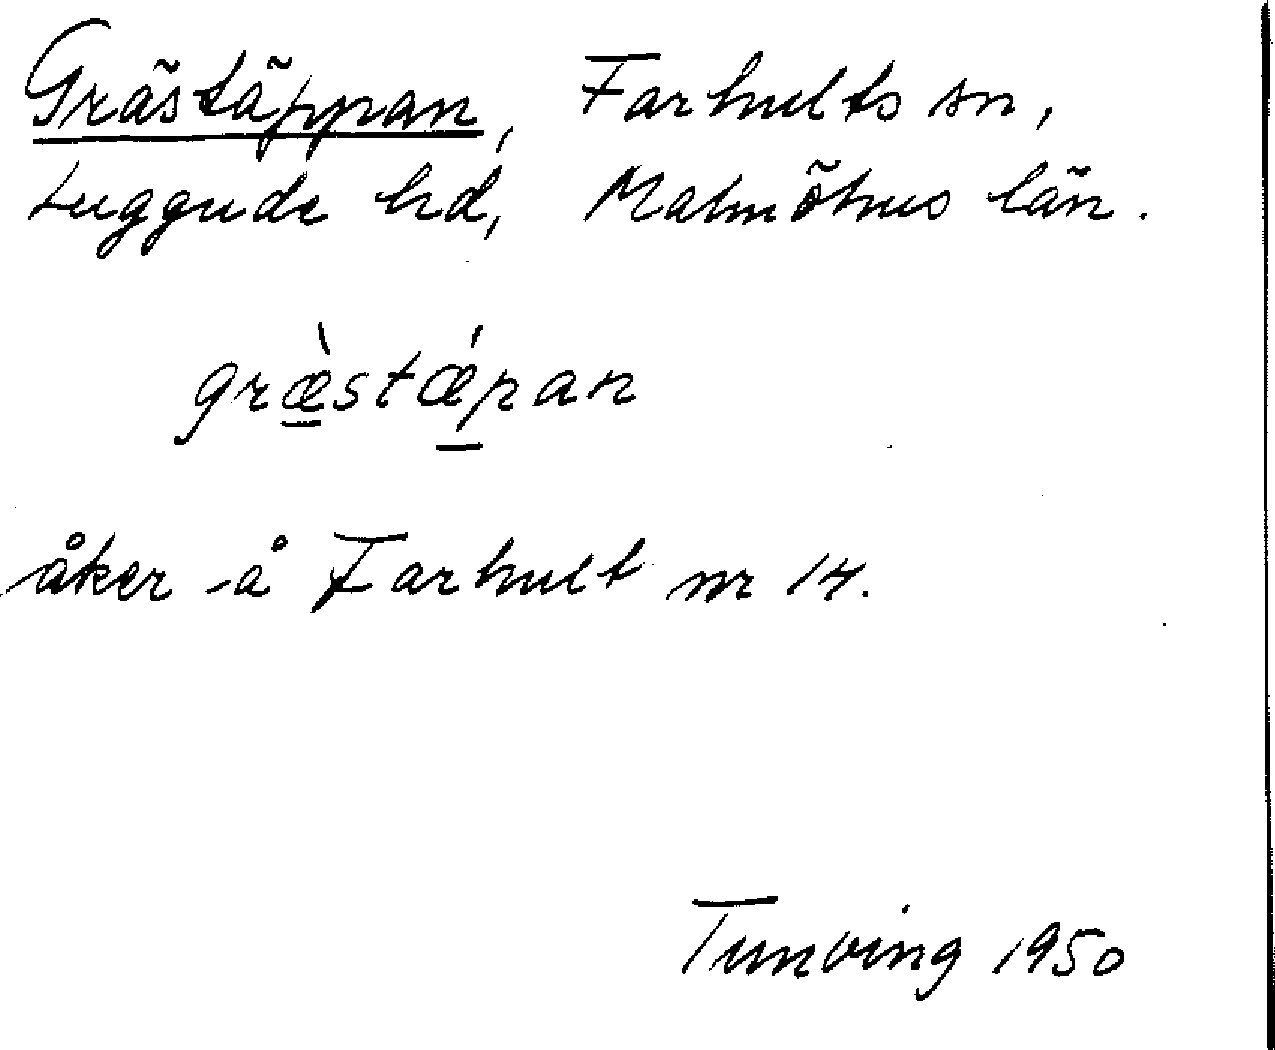 Grästäppan, Farhults sn,
Luggude hd, Malmöhus län.
græ̀stǽpan
åker å Farhult nr 14.
Tunving 1950